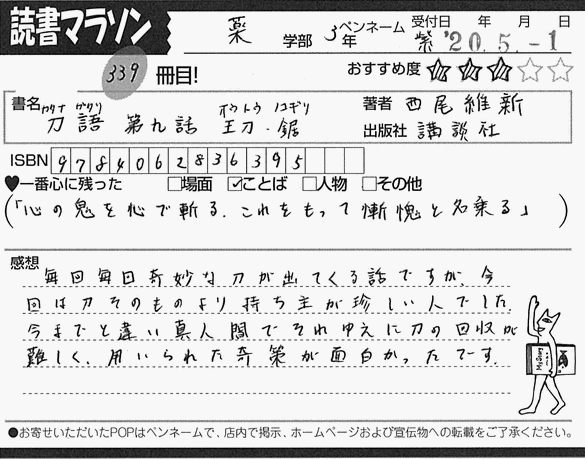 読書マラソン
薬 学部 3年 ペンネーム 紫 受付日 年 月 日 '20.5.-1
339 冊目! おすすめ度 ★★★☆☆
書名 刀語 カタナ ガタリ 第九話 王刀・鋸 オウトウ ノコギリ
著者 西尾維新
出版社 講談社
ISBN 9784062836395
♥一番心に残った □場面 ☑ことば □人物 □その他
(「心の鬼を心で斬る。これをもって慚愧と名乗る」)
感想
毎回毎回奇妙な刀が出てくる話ですが、今
回は刀そのものより持ち主が珍しい人でした。
今までと違い真人間でそれゆえに刀の回収が
難しく、用いられた奇策が面白かったです。
●お寄せいただいたPOPはペンネームで、店内で掲示、ホームページおよび宣伝物への転載をご了承ください。